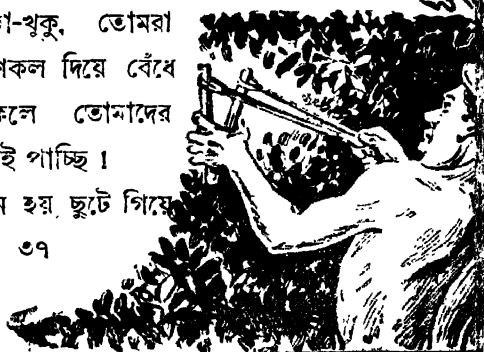 -খুকু, তোমরা
শিকল দিয়ে বেঁধে
তোমাদের
ই পাচ্ছি।
হয় ছুটে গিয়ে
৩৭